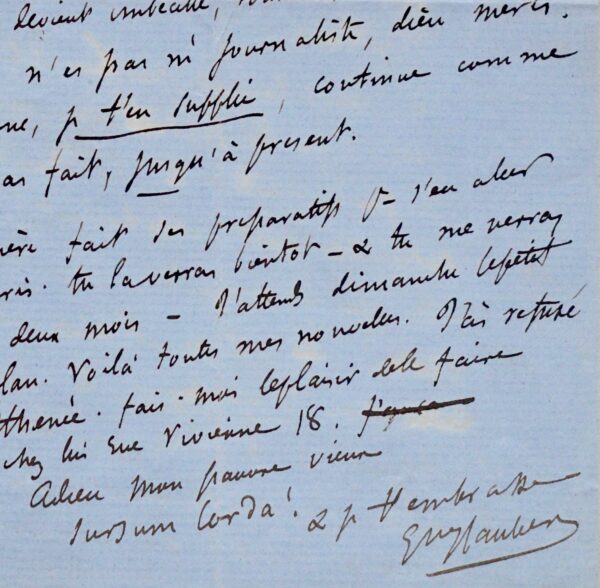 devient imbécile,
n'es pas né journaliste, dieu merci.
ne, je t'en supplie, continue comme
as fait, jusqu'à présent.
ère fait des préparatifs pr s'en aller
ris. tu la verras bientôt – & tu me verras
deux mois – J'attends dimanche le petit
lan. Voilà toutes mes nouvelles. J'ai refusé
thenée. fais-moi le plaisir de le faire
chez lui rue Vivienne 18.
Adieu mon pauvre vieux
Sursum Corda! & je t'embrasse
Gve Flaubert